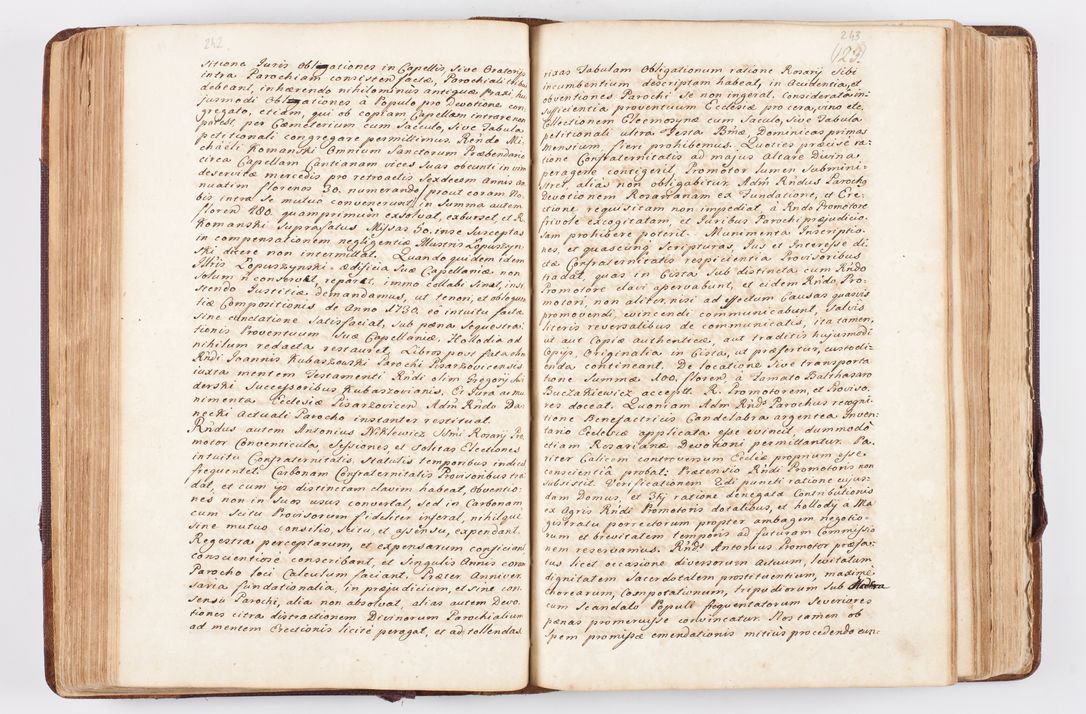 242
sitione Juris Obligationes in Capellis, sive Oratorijs
intra Parochiam consistentes factæ, Parochiali tribui
debeant, inhærendo nihilominus antiquæ praxi, hu
jusmodi Oblationes à Populo pro Devotione con
gregato, etiam, qui ob copiam Capellam intrare non
potest, per Cæmeterium cum Sacculo, sive Tabula
petitionali congregare permittimus. Rndo Mi
chaeli Romanski Omnium Sanctorum Præbendario
circa Capellam Cantianam vices suas obeunti in vim
deservitæ mercedis pro retroactis Sexdecem Annis an
nuatim florenos 30. numerando prout coram No
bis intra se mutuo convenerunt, in Summa autem
floren 480. quamprimum exsolvat, exbursel, et R.
Romanski Suprafatus Missas 50. in se susceptas
in compensationem negligentiæ Illustris Lopuszyn
ski dicere non intermittat. Quando quidem idem
Illris Lopuszynski ædificia suæ Capellaniæ non
solum ñ conservat, reparat, immo collabi sinat, insi
stendo Justitiæ demandamus, ut tenori, et obloquen
tiæ Compositionis de Anno 1730. eo intuitu factæ
sine cunctatione satisfaciat, sub pæna Sequestra
tionis Proventuum suæ Capellaniæ, Hollodia ad
nihilum redacta restauret. Libros post fata olim
Rndi Joannis Kubaszowski Parochi Pisarzovicensis
iuxta mentem Testamenti Rndi olim Gregorij
derski Successoribus Kubaszovianis, Ei Jura ac mu
nimenta Ecclesiæ Pisarzovicen. Adm Rndo Da
necki Actuali Parocho instanter restituat.
Rndus autem Antonius Niklewicz Ssmi Rosarij Pro
motor Conventicula, Sessiones, et solitas Electiones
intuitu Confraternitatis, statutis temporibus indicet
frequentet. Carbonam Confraternitatis Provisoribus tra
dat, et cum ijs distinctam clavim habeat, Obventio
nes non in suos usus convertat, sed in Carbonam
cum scitu Provisorum fideliter inferat, nihilque
sine mutuo consilio, scitu, et assensu, expendant.
Regestra perceptarum, et expensarum conficiant
consuentiose conscribant, et singulis Annis coram
Parocho loci Calculum faciant. Præter Anniver
saria fundationalia, in præjudicium, et sine con
sensu Parochi, alia non absolvat, alias autem Devo
tiones citra distractionem Divinorum Parochialium
ad mentem Erectionis licité peragat, et ad tollendas
243
(123.)
rixas Tabulam Obligationum ratione Rosarij sibi
incumbentium descriptam habeat, in Accidentia, et
obventiones Parochi se non ingerat, Considerata in
sufficientia proventuum Ecclesiæ pro cera, vino etc.
Collectionem Eleemosynæ cum Sacculo, sive Tabula
petitionali ultra Festa Bmæ, Dominicas primas
Mensium, fieri prohibemus. Quoties præcise ra
tione Confraternitatis ad majus Altare Divina
peragere contigerit, Promotor lumen subminis
tret, alias non obligabitur. Adm Rndus Parochus
Devotionem Rosarianam ex Fundatione, et Ere
ctione requisitam non impediat, à Rndo Promotore
frivole excogitatam, et Juribus Parochi præjudicio
sam prohibere poterit. Munimenta Inscriptio
nes, et quascunq Scripturas, Jus et Interesse di
ctæ Confraternitatis respicientia Provisoribus
tradat, quas in Cista sub distincta cum Rndo
Promotore clavi asservabunt, et eidem Rndo, Pro
motori, non aliter, nisi ad effectum Causas quasvis
promovendi, evincendi communicabunt, salvis
literis reversalibus de communicatis, ita tamen,
ut aut Copiæ authenticæ, aut traditis hujusmodi
Copijs, Originalia in Cista, ut præfertur, custodi
enda contineant. De locatione sive transporta
tione Summæ 100. floren, à Famato Balthasaro
Buczakiewicz accept. R. Promotorem, et Proviso
res doceat. Quoniam Adm Rnds Parochus recogni
tione Benefactricis Candelabra argentea Inven
tario Ecclesiæ applicata esse evincit, dummodo
etiam Rosarianæ Devotioni permittantur. Pa
riter Calicem controversum Ecclæ proprium esse
conscientia probat: Prætensio Rndi Promotoris non
subsistit. Verificationem 2di puncti ratione cujus
dam Domus, et 3tij ratione denegatæ Contributionis
ex Agris Rndi Promotoris dotalibus, et hollody à Ma
gistratu porrectorum propter ambagem negotio
rum et brevitatem temporis ad futuram Commissio
nem reservamus. Rnds Antonius Promotor præfa
tus licet occasione diversorum Actuum, levitatum
dignitatem Sacerdotalem prostituentium, maximé
chorearum, Compotationum, tripudiorum sub
cum scandalo Populi frequentatorum severiores
pænas promeruisse convincatur. Nos tamen ob
spem promissæ emendationis mitius procedendo eun-